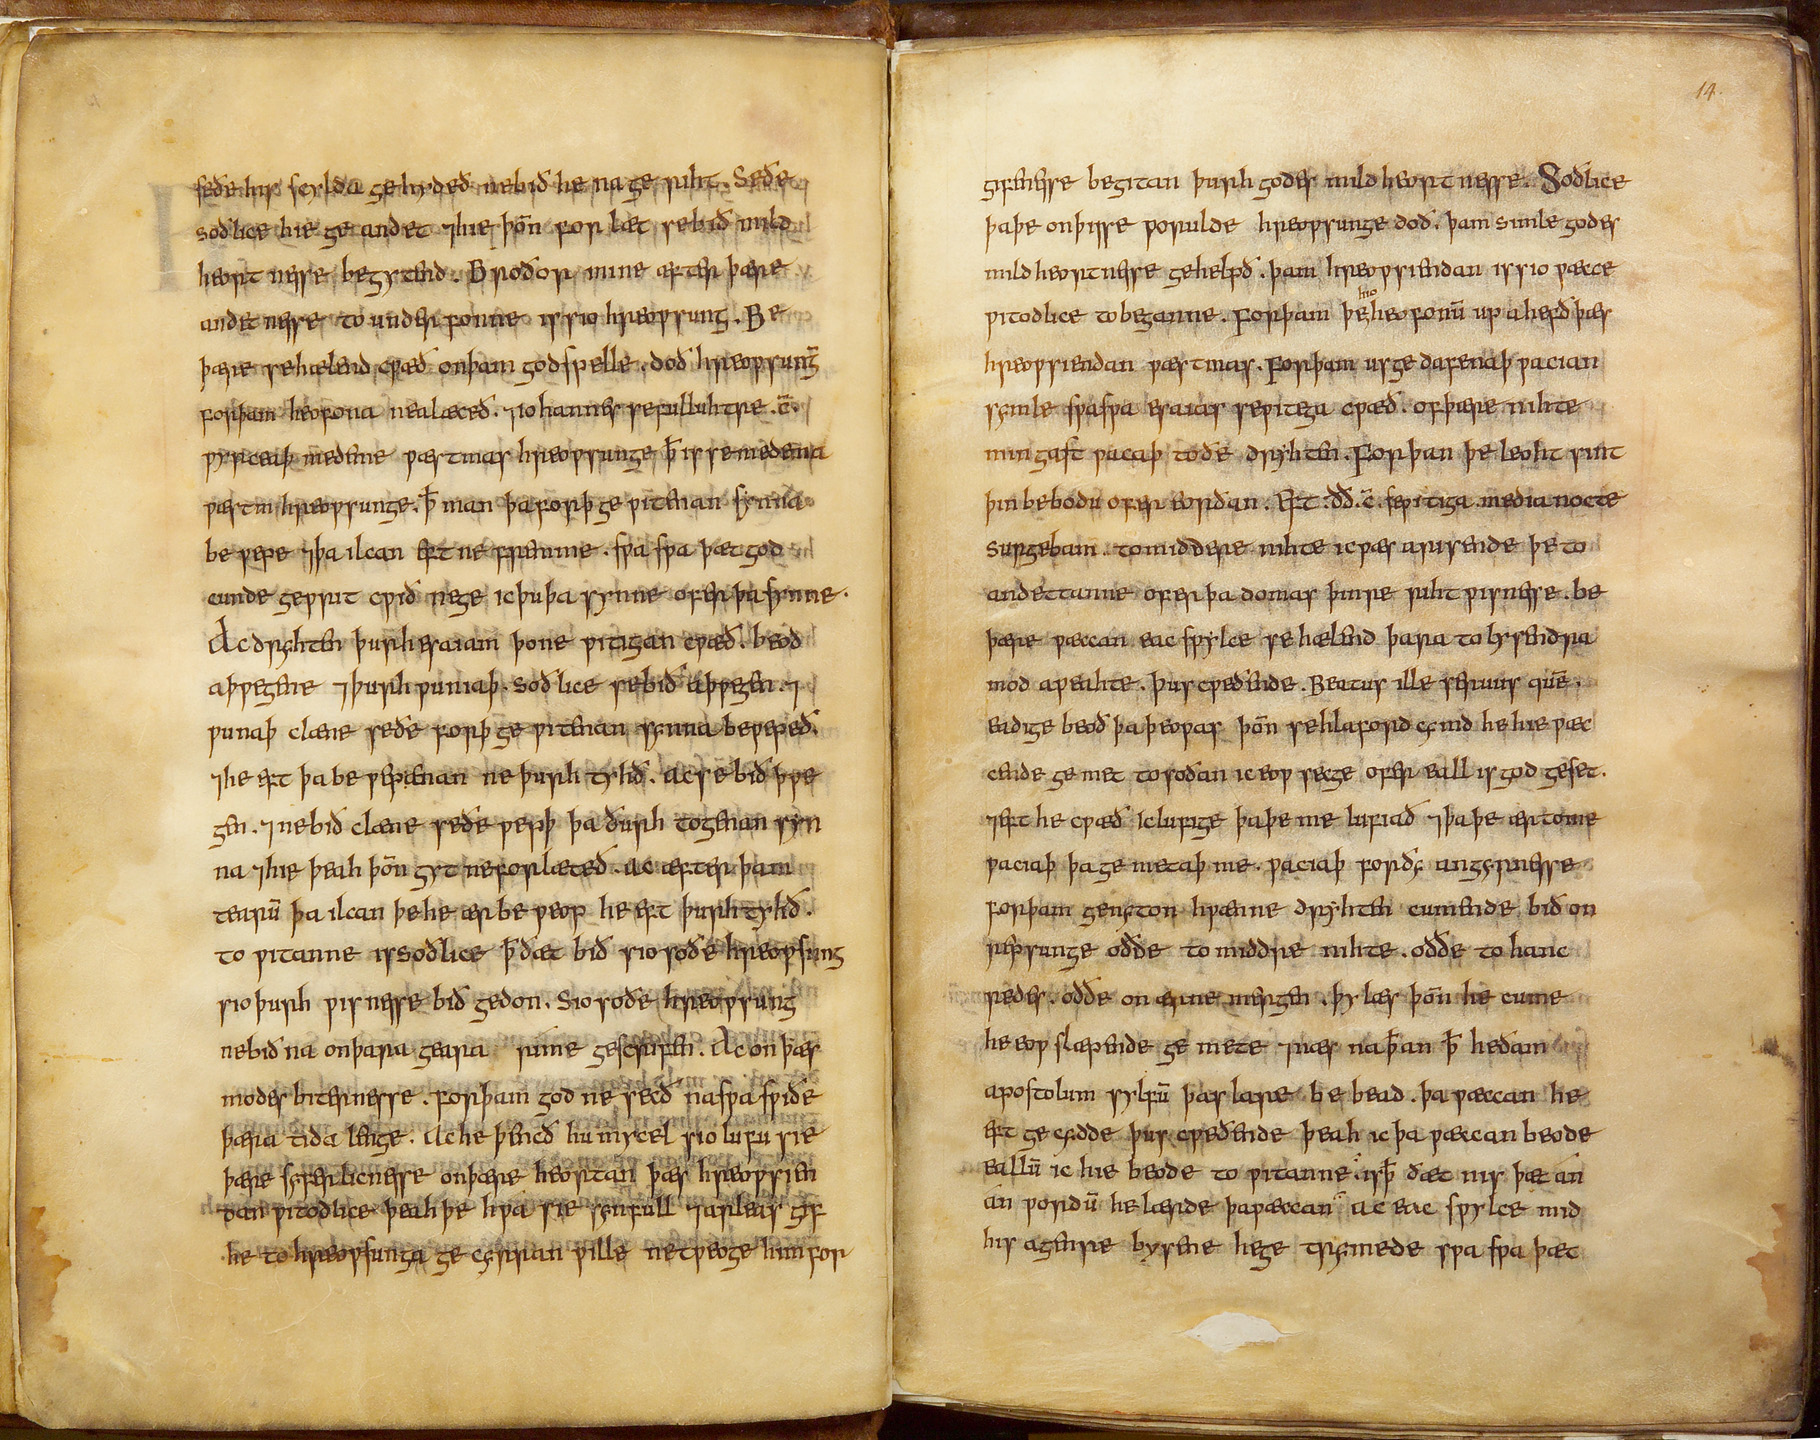 seðe his scylda gehydeð nebið he na ge riht. Seðe
soðlice hie ge andet ⁊hie þoñ for læt se bið mild
heort nesse begytend. Broðor mine æfter þære
andet nesse to under fonne is sio hreoƿsung. Be
þære sehælend cƿæð onþam godspelle. doð hreoƿsunḡ
forþam heofona nealæceð. ⁊iohannes sefulluhtre .c̄.
ƿyrceaþ medeme ƿæstmas hreoƿsunge þ̄ is se medema
ƿæstm hreoƿsunge. þ̄ man þa forþ ge ƿitenan synna
be ƿepe ⁊þa ilcan eft ne fremme. sƿa sƿa þæt god
cunde geƿrit cƿið nege icþuþa synne ofer þa synne.
Ac dryhten þurh esaiam þone ƿitigan cƿæð. beoð
aþƿegene ⁊þurh ƿuniaþ. soðlice se bið aþƿegen. ⁊
ƿunaþ clæne seðe forþ ge ƿitenan synna beƿepeð.
⁊he eft þa be ƿepenan ne þurh tyhð. Ac se bið þƿe
gen. ⁊nebið clæne seðe ƿepþ þa ðurh togenan syn
na ⁊hie þeah þoñ gyt neforlæteð. ac æfter þam
tearū þa ilcan þe he ær be ƿeop he eft þurh tyhð.
to ƿitanne is soðlice þ̄ ðæt bið sio soðe hreoƿsung
sio þurh ƿisnesse bið gedon. Sio soðe hreoƿsung
nebið na onþara geara rime gescrifen. Ac on þæs
modes biternesse. Forþam god ne secð na sƿa sƿiðe
þæra tida lenge. Ac he þencð hu mycel sio lufu sie
þære syferlicnesse onþære heortan þæs hreoƿsien
dan ƿitodlice þeah þe hƿa sie synfull ⁊arleas gif
he to hreoƿsunga ge cyrran ƿille ne tƿeoge him for
14.
gifenesse begitan þurh godes mildheortnesse. Soðlice
þaþe onþisse ƿorulde hreoƿsunge doð. þam simle godes
mildheortnesse gehelpð. þam hreoƿsiendan is sio ƿæcce
ƿitodlice to beganne. Forþam þe hio heofonū up a hefð þæs
hreoƿsiendan ƿæstmas. Forþam us ge dafenaþ ƿacian
symle sƿa sƿa esaias se ƿitega cƿæð. of þære nihte
min gast ƿacaþ to ðe dryhten. Forþan þe leoht sint
þin bebodu ofer eorðan. Eft .đđ. c̄. seƿitiga. media nocte
surgebam. to middere nihte ic ƿæs arisende þe to
andettanne ofer þa domas þinre riht ƿisnesse. be
þære ƿæccan eac sƿylce se hælend þara to hyrendra
mod aƿeahte. þus cƿeðende. Beatus ille seruus quē.
eadige beoð þa þeoƿas þoñ se hlaford cymð he hie ƿæc
cende ge met to soðan ic eoƿ secge ofer eall is god geset.
⁊eft he cƿæð ic lufige þaþe me lufiað ⁊þa þe ær to me
ƿaciaþ þa ge metaþ me. ƿaciaþ forðy angyrnesse
forþam genyton hƿænne dryhten cumende bið on
æfsunge oððe to middre nihte. oððe to hanc
redes. oððe on ærne mergen. þy læs þoñ he cume
he eoƿ slæpende ge mete ⁊næs na þ̄an þ̄ he ðam
apostolum sylfū þas lare be bead. þa ƿæccan he
eft ge cydde þus cƿeðende þeah ic þa ƿæccan beode
eallū ic hie beode to ƿitanne is þ̄ ðæt nis þæt án
án ƿordū he lærde þa ƿæccan ac eac sƿylce mid
his agenre bysene hege trymede sƿa sƿa þæt